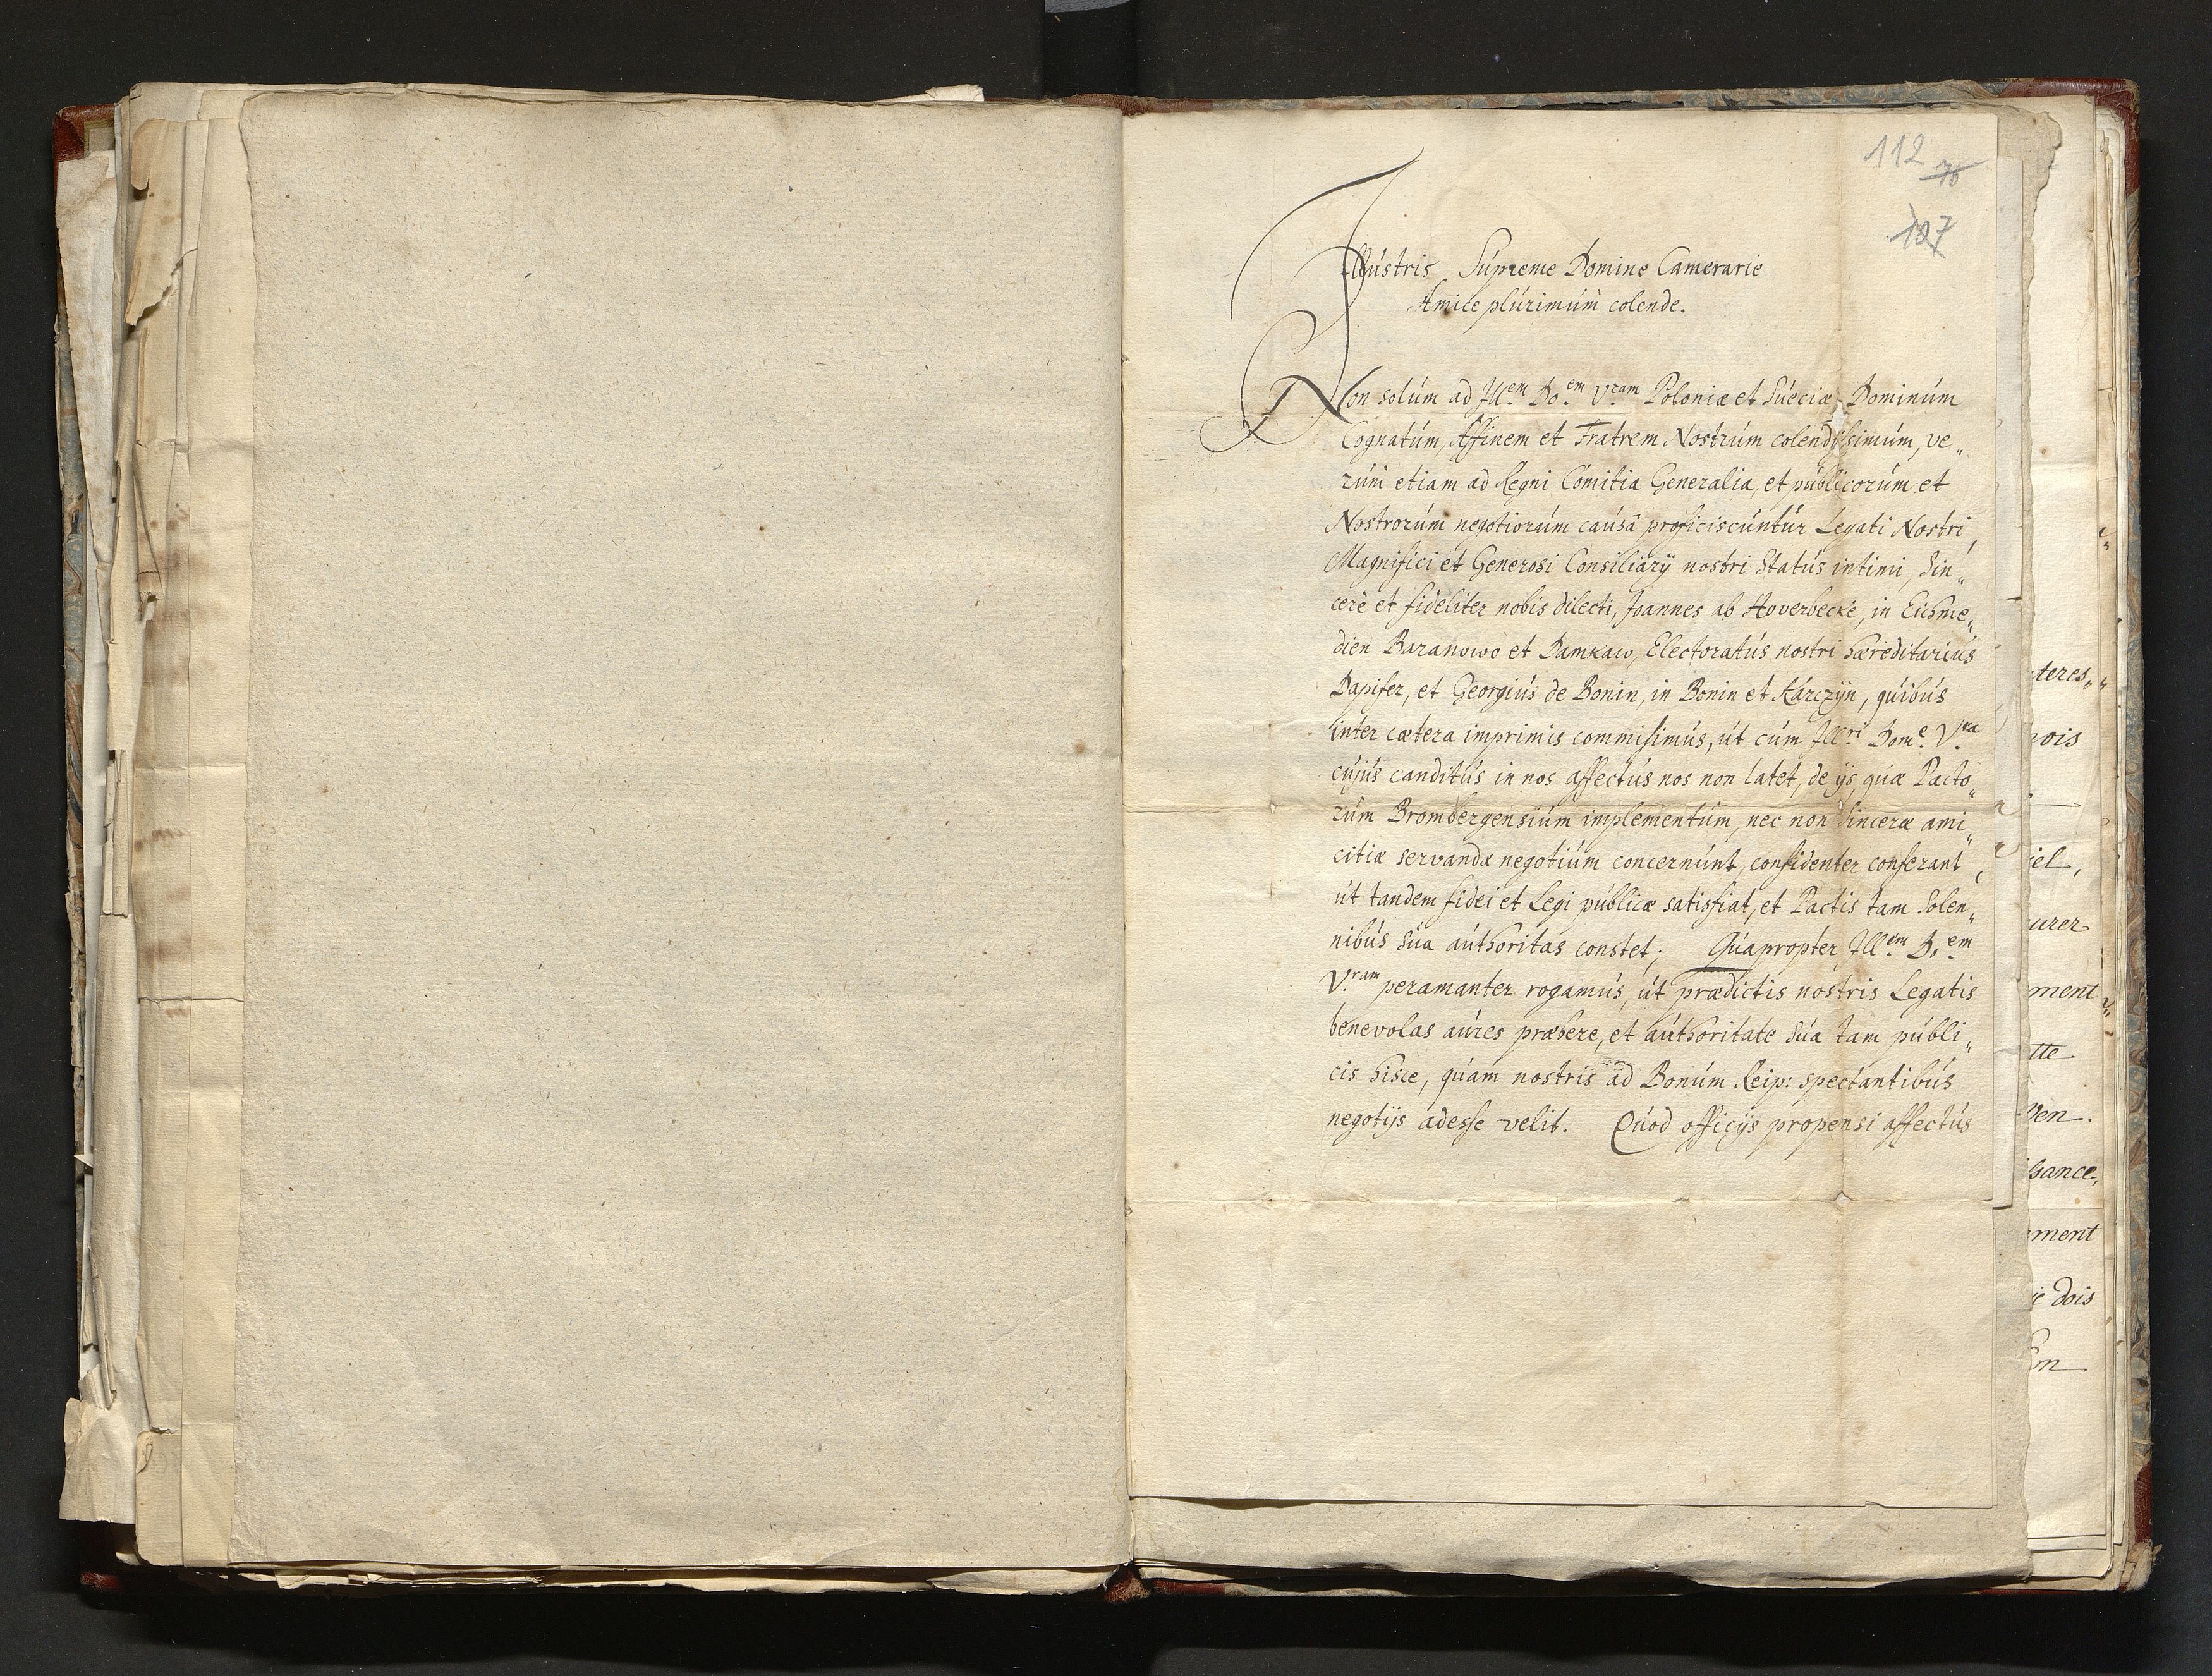 112
76
107
Illustris Supreme Domine Camerarie
Amice plurimum colende.
Non solum ad Ill.em Do.em V.ram Poloniæ et Sueciæ Dominum
Cognatum, Affinem et Fratrem Nostrum colendissimum, ve„
rum etiam ad Regni Comitia Generalia, et publicorum et
Nostrorum negotiorum causâ proficiscuntur Legati Nostri,
Magnifici et Generosi Consiliarÿ nostri Status intimi, Sin„
cerè et fideliter nobis dilecti, Joannes ab Hoverbecke, in Eichme„
dien Baranowo et Damkaw, Electoratus nostri hæreditarius
Dapifer, et Georgius de Bonin, in Bonin et Karczÿn, quibus
inter cætera imprimis commisimus, ut cum Ill.ri Dom.e V.ra
cujus canditus in nos affectus nos non latet, de ÿs, quæ Pacto„
rum Brombergensium implementum, nec non Sinceræ ami„
citiæ servandæ negotium concernunt, confidenter conferant,
ut tandem fidei et Legi publicæ satisfiat, et Pactis tam Solen„
nibus Sua authoritas constet; Quapropter Ill.em D.em
V.ram peramanter rogamus, ut prædictis nostris Legatis
benevolas aures præbere, et authoritate Sua tam publi„
cis hisce, quam nostris ad Bonum Reip: spectantibus
negotÿs adesse velit. Quod officÿs propensi affectus
teres„
ois
iel,
urer
ment
tte
sance,
ment
dois